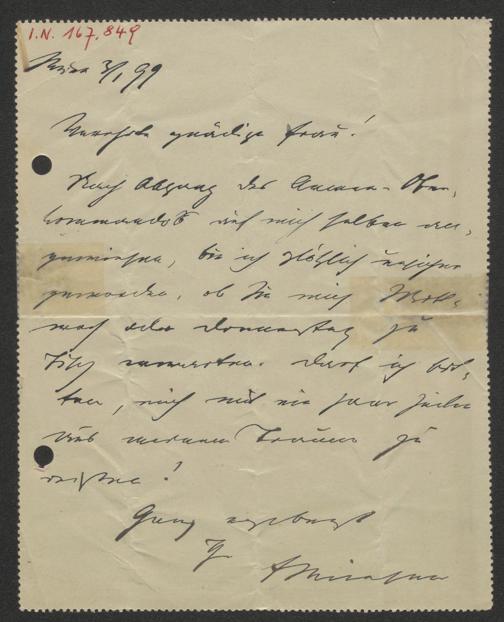 I.N. 167.849
Wien 3/1 99
Verehrte gnädige Frau!
Nach Abgang des Armee-Ober-
kommandos auf mich selber an-
gewiesen, bin ich plötzlich unsicher
geworden, ob Sie mich Mitt-
woch oder Donnerstag zu
Tisch erwarten. Darf ich bit-
ten, mich mit ein paar Zeilen
aus meinem Traume zu
reißen!
Ganz ergebenst
Ihr